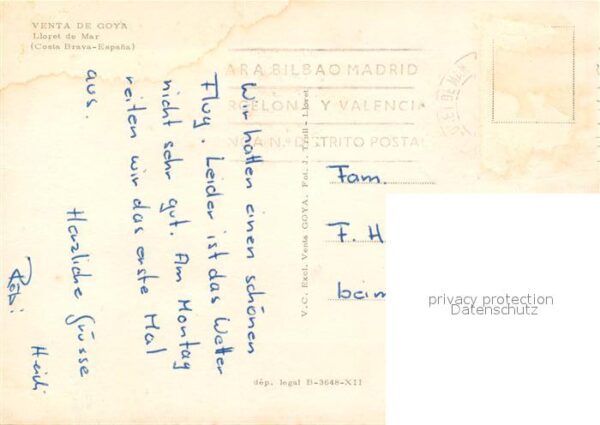 VENTA DE GOYA
Lloret de Mar
(Costa Brava-España)
ARA BILBAO MADRID
RCELONA Y VALENCIA
NGA N.º DISTRITO POSTAL
Wir hatten einen schönen
Flug. Leider ist das Wetter
nicht sehr gut. Am Montag
reiten wir das erste Mal
aus.
Herzliche Grüsse
Heidi
Robi
V.C. Excl. Venta GOYA. Fot. J. - Lloret
Fam.
F. H
beim
privacy protection
Datenschutz
dép. legal B-3648-XII